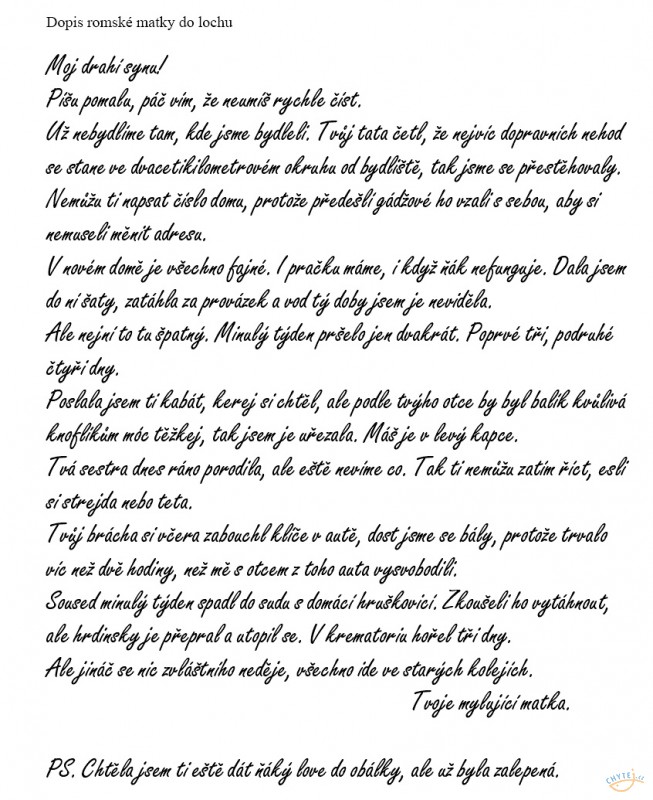 Dopis romské matky do lochu
Moj drahí synu!
Píšu pomalu, páč vím, že neumíš rychle číst.
Už nebydlíme tam, kde jsme bydleli. Tvůj tata četl, že nejvíc dopravních nehod
se stane ve dvacetikilometrovém okruhu od bydliště, tak jsme se přestěhovaly.
Nemůžu ti napsat číslo domu, protože předešlí gádžové ho vzali s sebou, aby si
nemuseli měnit adresu.
V novém domě je všechno fajné. I pračku máme, i když ňák nefunguje. Dala jsem
do ní šaty, zatáhla za provázek a vod tý doby jsem je neviděla.
Ale nejní to tu špatný. Minulý týden pršelo jen dvakrát. Poprvé tři, podruhé
čtyři dny.
Poslala jsem ti kabát, kerej si chtěl, ale podle tvýho otce by byl balík kvůlivá
knoflíkům móc těžkej, tak jsem je uřezala. Máš je v levý kapce.
Tvá sestra dnes ráno porodila, ale eště nevíme co. Tak ti nemůžu zatím říct, esli
si strejda nebo teta.
Tvůj brácha si včera zabouchl klíče v autě, dost jsme se bály, protože trvalo
víc než dvě hodiny, než mě s otcem z toho auta vysvobodili.
Soused minulý týden spadl do sudu s domácí hruškovicí. Zkoušeli ho vytáhnout,
ale hrdinsky je přepral a utopil se. V krematoriu hořel tři dny.
Ale jináč se nic zvláštního neděje, všechno ide ve starých kolejích.
Tvoje mylující matka.
PS. Chtěla jsem ti eště dát ňáký love do obálky, ale už byla zalepená.
CHYTEJ.cz